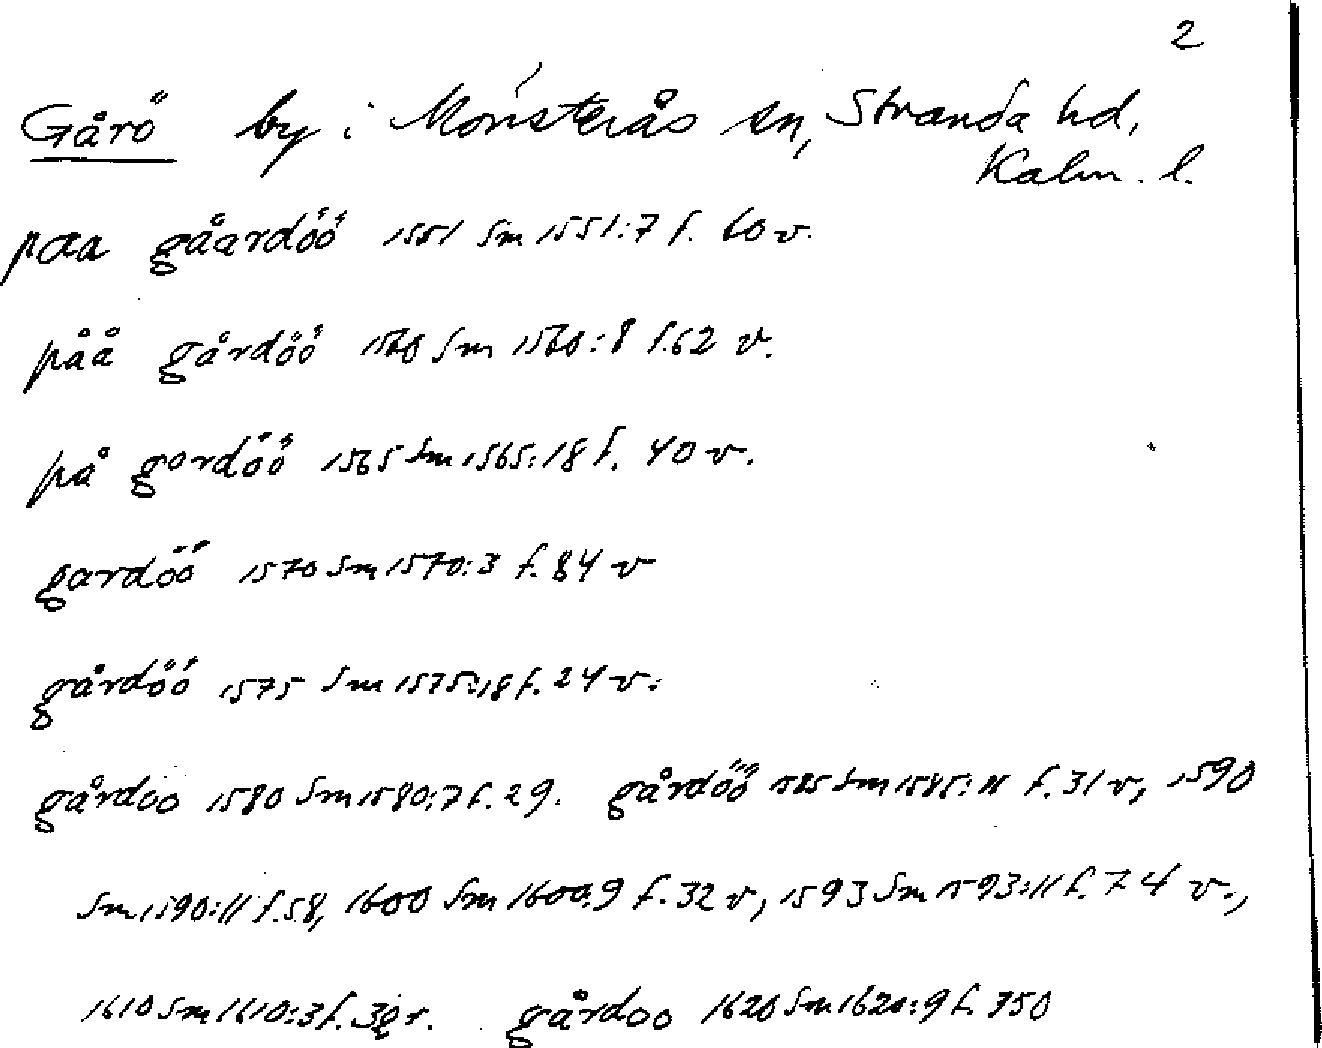 2
Gårö by i Mönsterås sn, Stranda hd,
Kalm. l.
paa gåardöö 1551 Sm 1551:7 f. 60 v.
påå gårdöö 1560 Sm 1560:8 f.62 v.
på gordöö 1565 Sm 1565:18 f. 40 v.
gardöö 1570 Sm 1570:3 f. 84 v
gårdöö 1575 Sm 1575:18 f. 24 v.
gårdoo 1580 Sm 1580:7 f. 29. gårdöö 1585 Sm 1585:11 f. 31 v, 1590
Sm 1590:11 f.58, 1600 Sm 1600:9 f. 32 v, 1593 Sm 1593:11 f. 74 v.,
1610 Sm 1610:3 f. gårdoo 1620 Sm 1620:9 f. 350